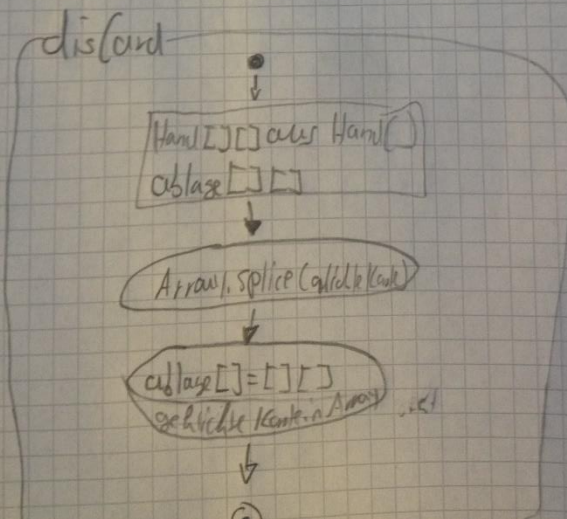 disCard
Hand[][] aus Hand()
ablage[][]
Array.splice(geklickte Karte)
ablage[]=[][]
geklickte Karte in Array